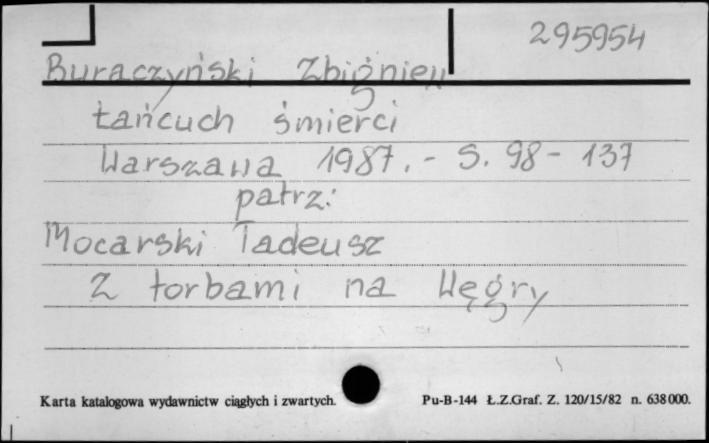 295954
Buraczyński Zbigniew
Łańcuch śmierci
Warszawa 1987. - S. 98 - 137
patrz:
Mocarski Tadeusz
Z torbami na Węgry
Karta katalogowa wydawnictw ciągłych i zwartych. Pu-B-144 Ł.Z.Graf. Z. 120/15/82 n. 638000.